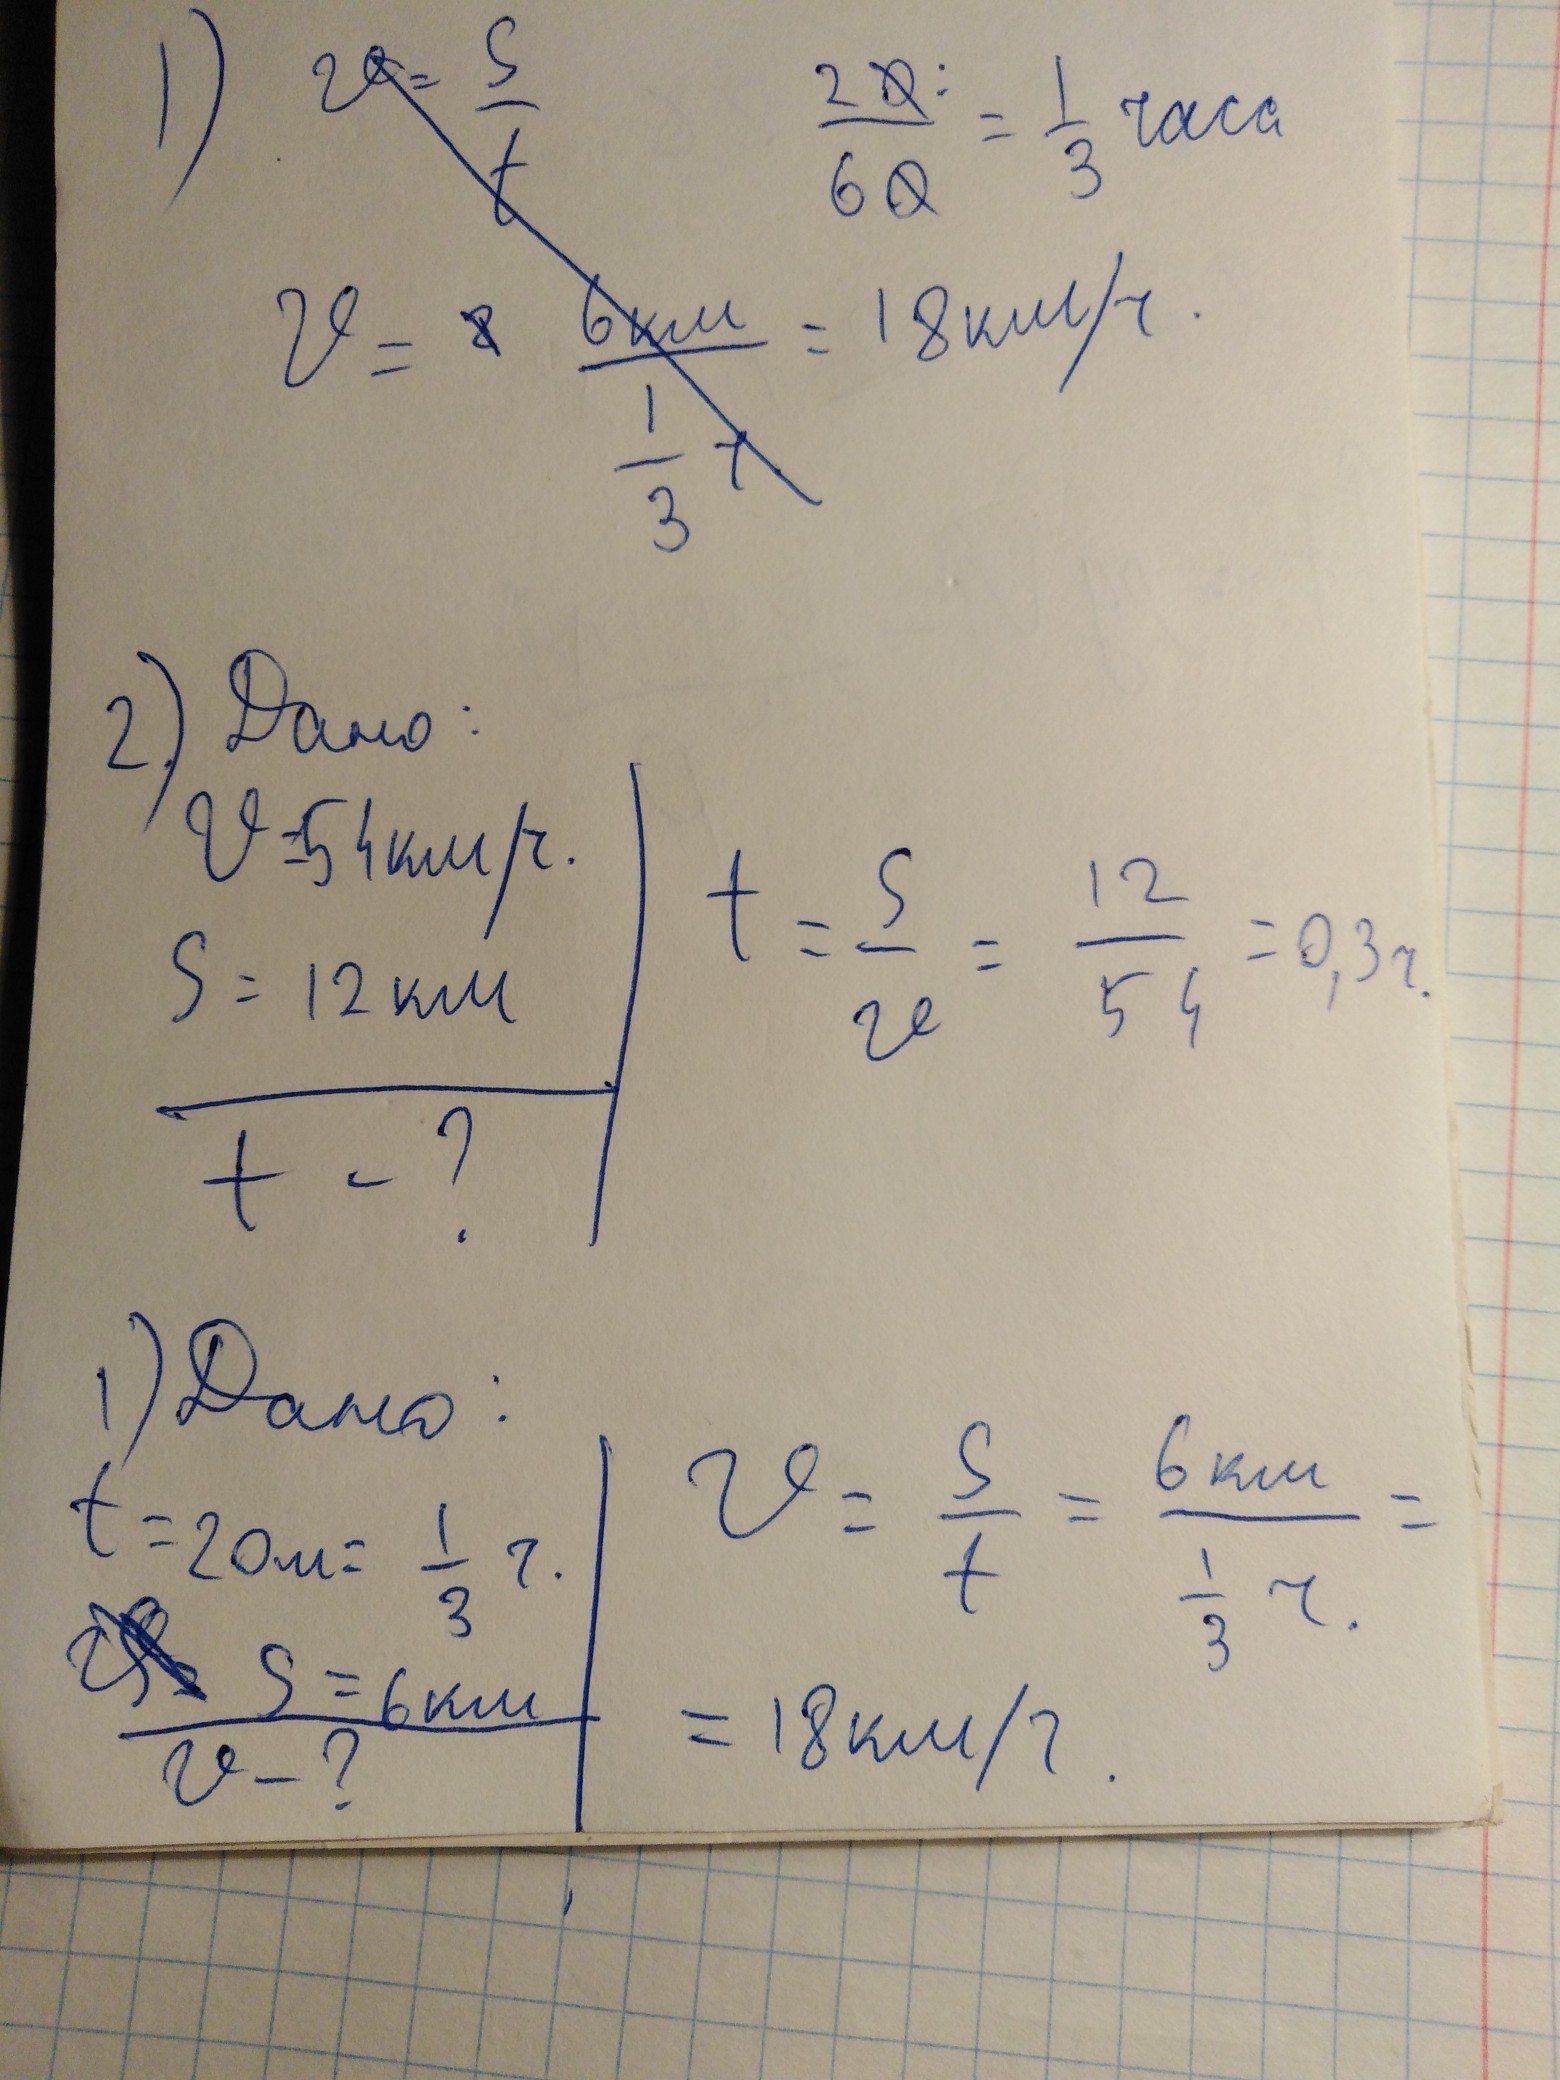 1) v = S/t 20/60 = 1/3 часа
v = 6км / 1/3 ч = 18км/ч.
2) Дано:
v=54км/ч.
S = 12км
t = S/v = 12/54 = 0,3ч.
t - ?
1) Дано:
t = 20м = 1/3 ч.
S = 6км
v - ?
v = S/t = 6км / 1/3 ч. =
= 18км/ч.